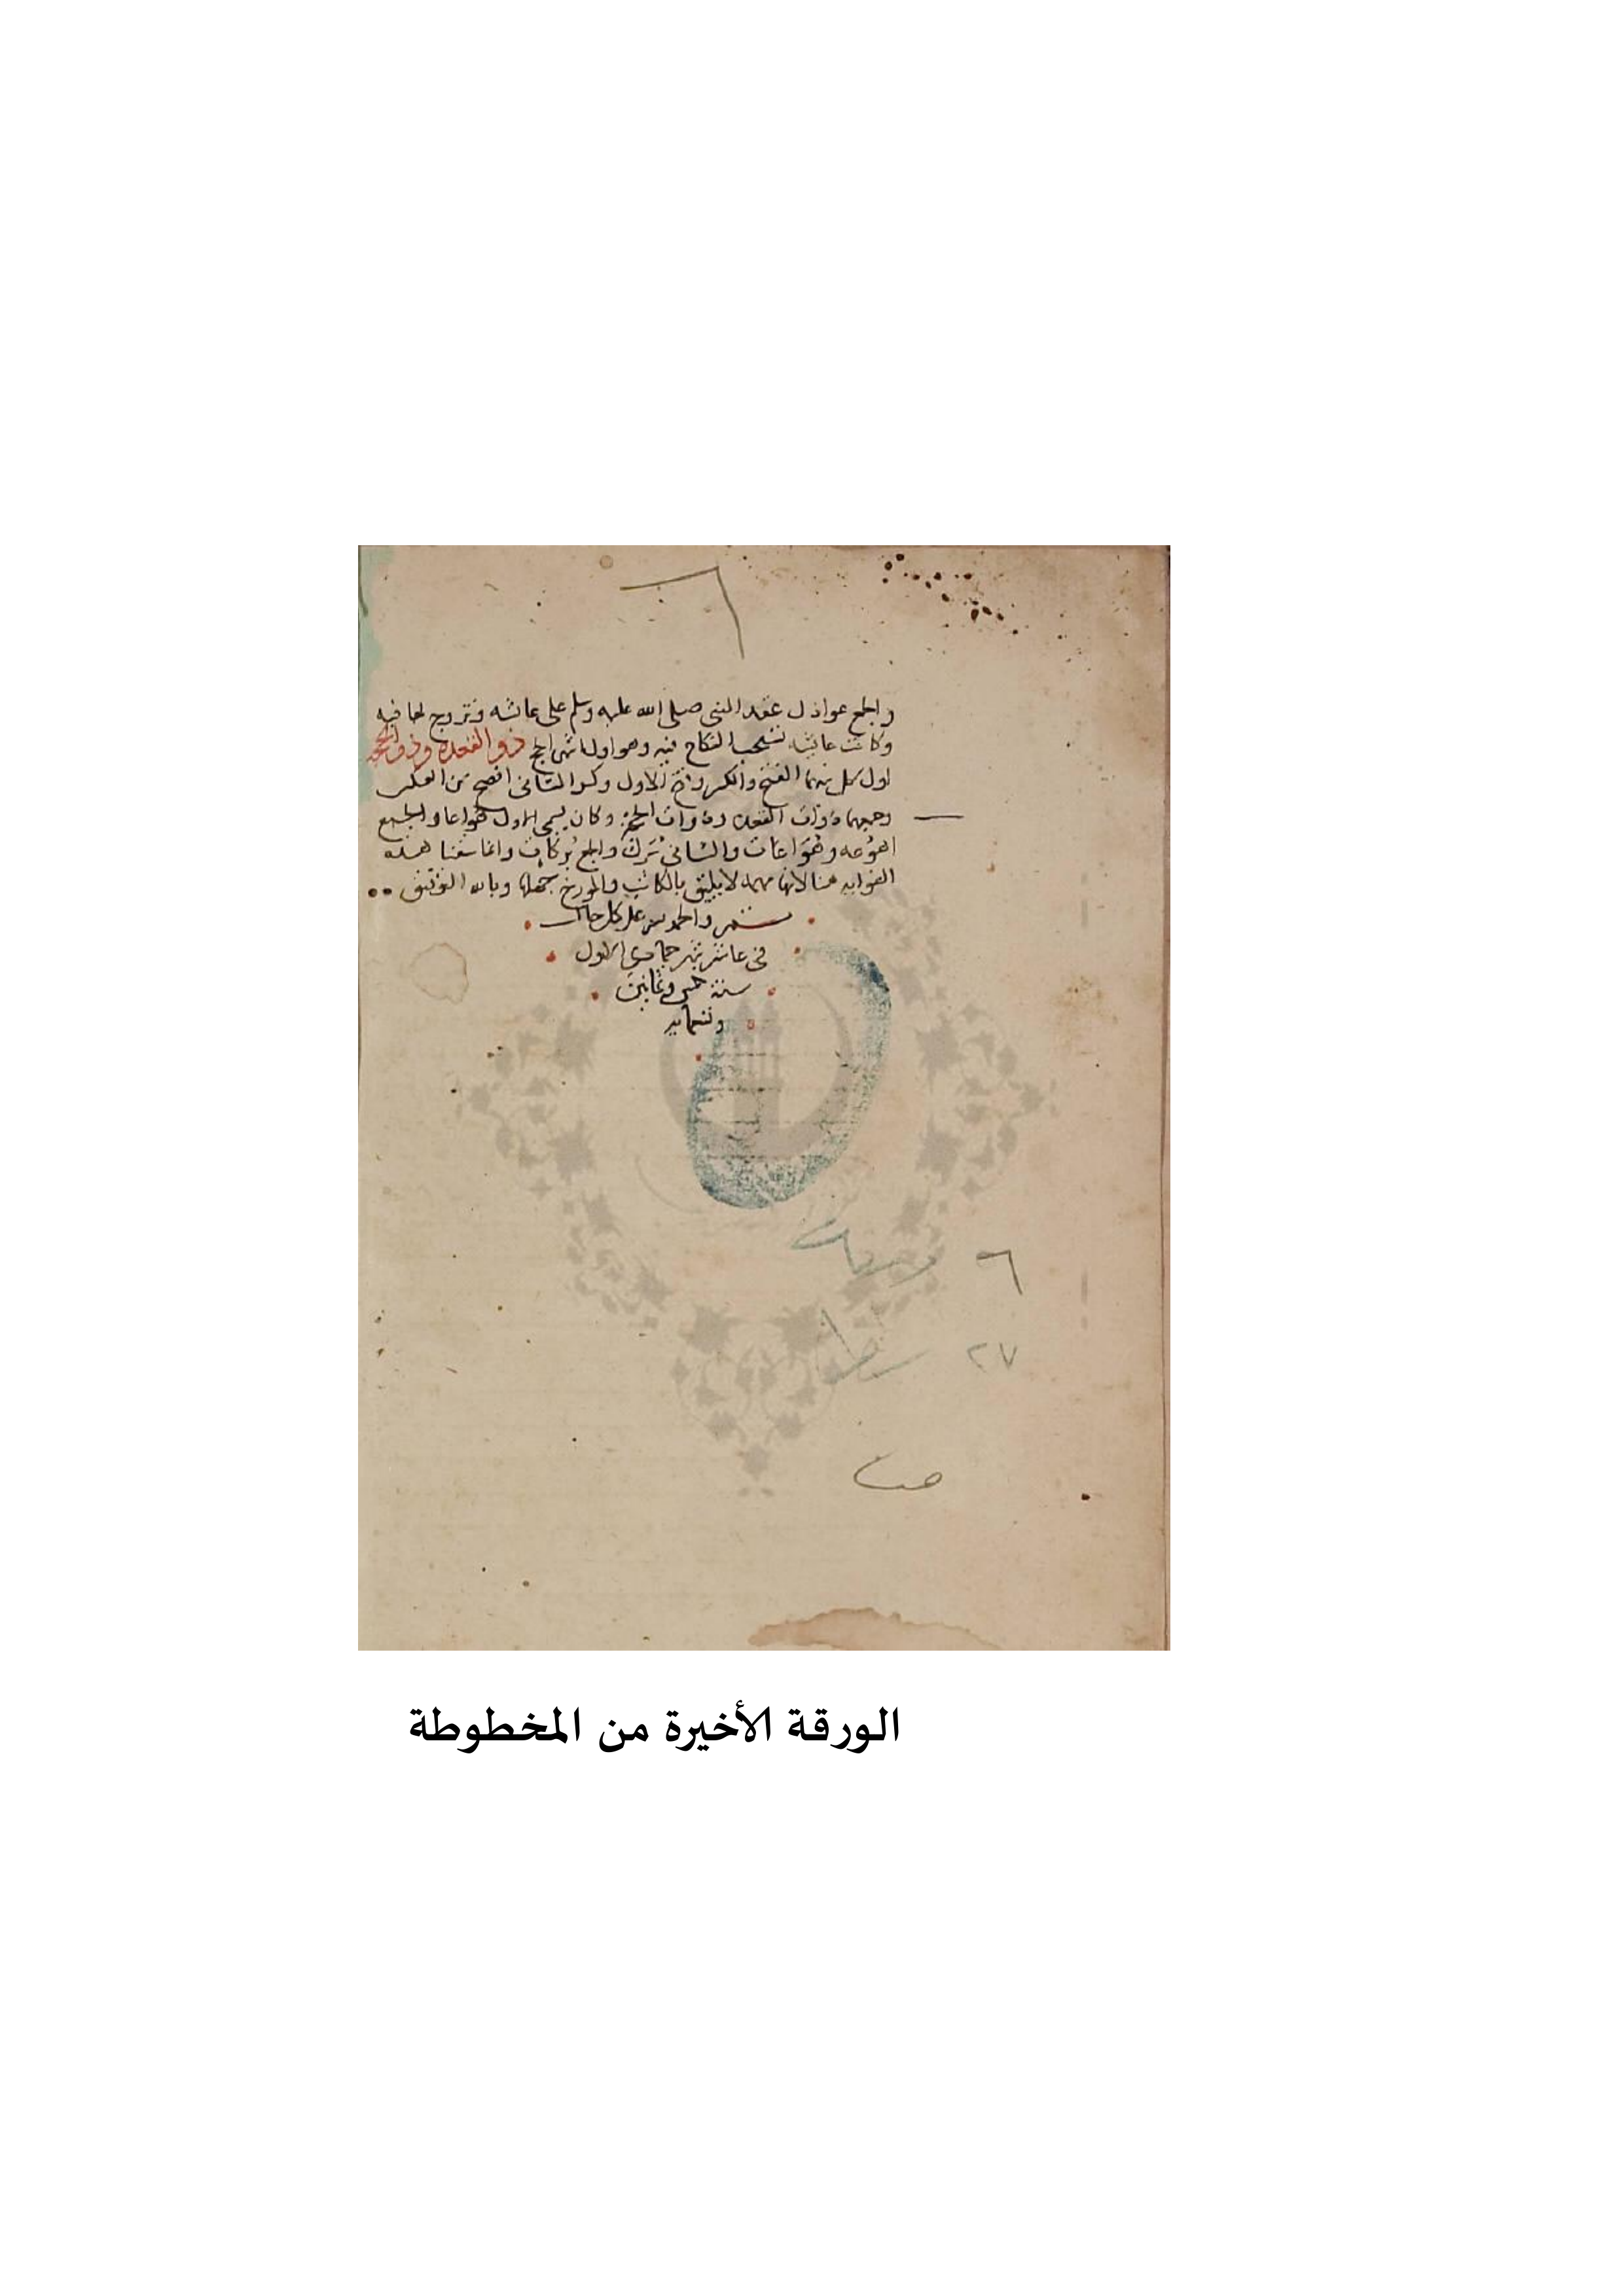 ٦
والجمع عواذل عقد النبي صلى الله عليه وسلم على عائشه وتزوج لها فيه
وكانت عائشه تستحب النكاح فيه وهو اول اشهر الحج ذو القعده وذو الحجه
اول كل منهما الفتح والكسر وفتح الاول وكسر الثاني افصح من العكس
وجمعهما ذوات القعده وذوات الحجة وكان يسمى الاول هواعا والجمع
اهوعه وهواعات والثاني برك والجمع بركات وانما سقنا هذه
الفوايد هنا لانها مهمه لا يليق بالكاتب والمورخ جهلها وبالله التوفيق
تمت والحمد لله على كل حال
في عاشر شهر جمادى الاول
سنة خمس وثمانين
وتسعمايه
٦
٢٧
الورقة الأخيرة من المخطوطة